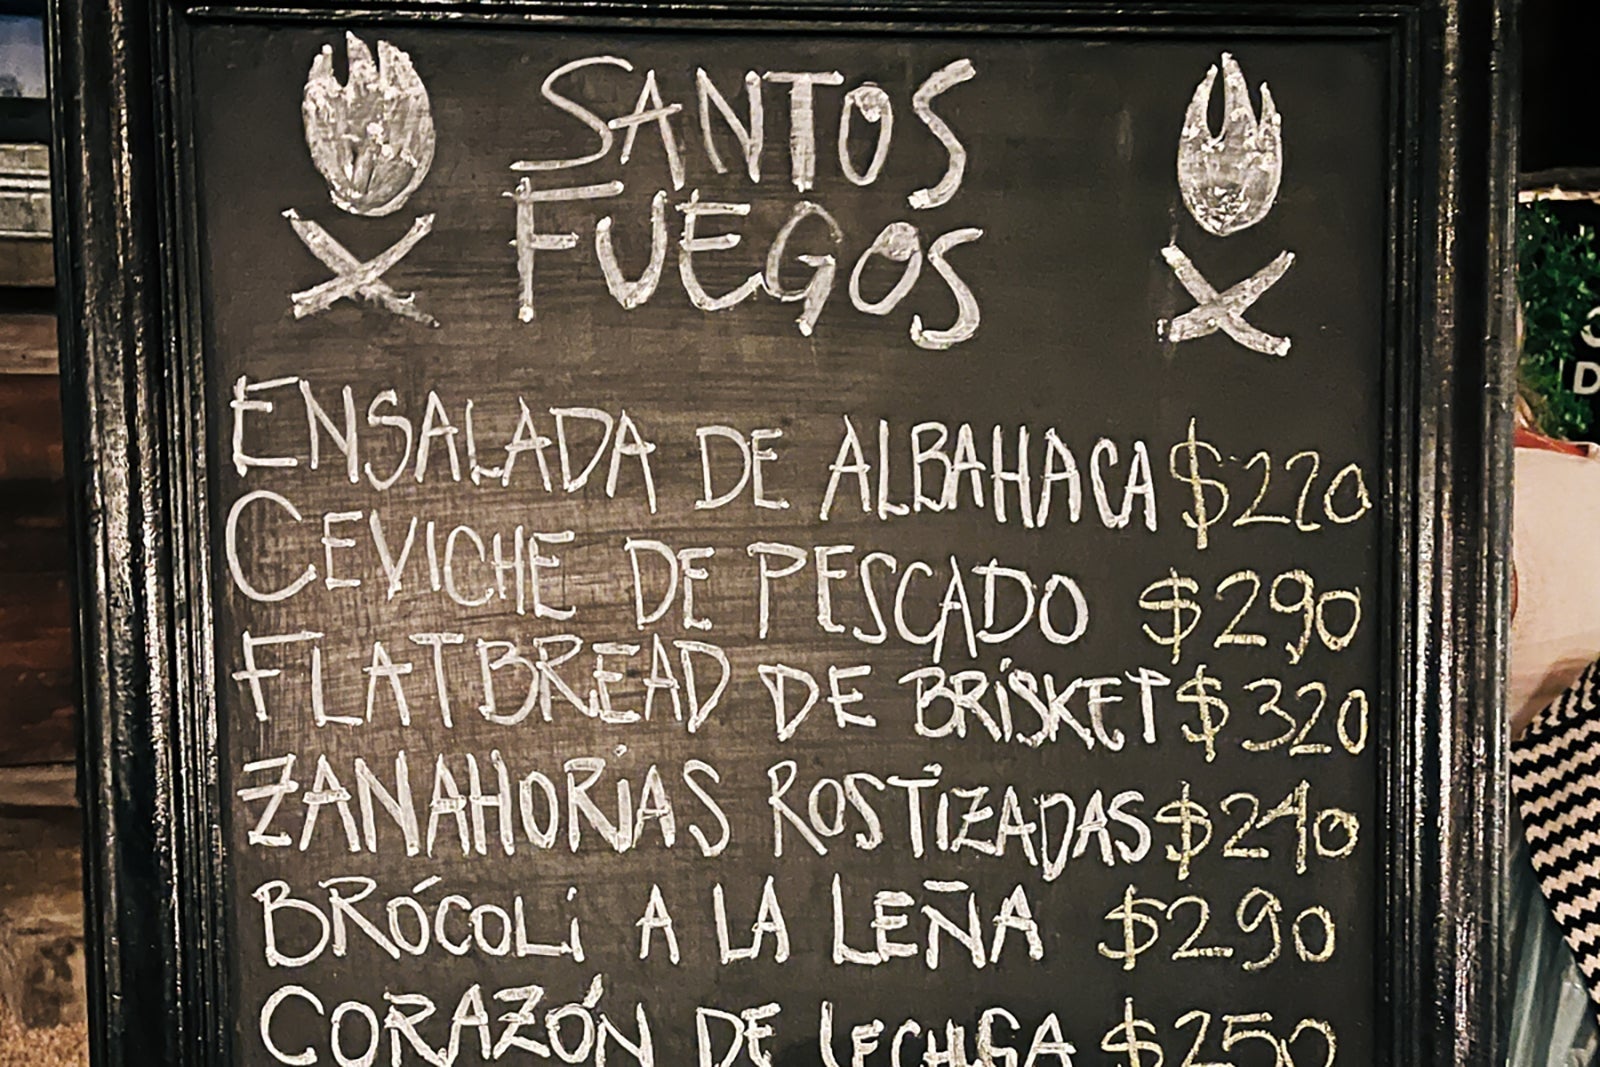 SANTOS
FUEGOS
ENSALADA DE ALBAHACA $220
CEVICHE DE PESCADO $290
FLATBREAD DE BRISKET $320
ZANAHORIAS ROSTIZADAS $240
BRÓCOLI A LA LEÑA $290
CORAZÓN DE LECHUGA $250